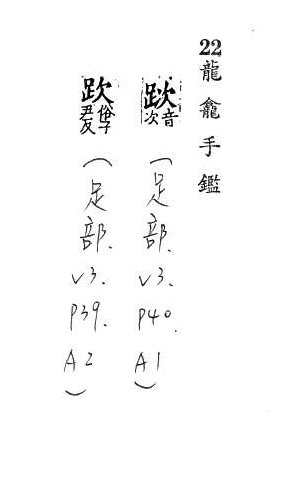 22龍龕手鑑
音次(足部.v3.P40.A1)
俗子君反(足部.v3.P39.A2)